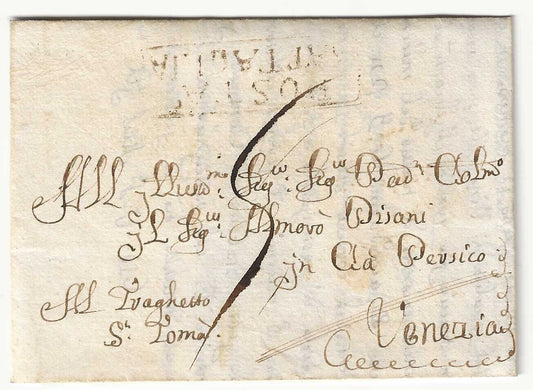 POSTA
All Illus:mo Sig:r Sig:r Pad:n Col:mo
Il Sig:r Almorò Pisani
in Cà Persico
Al Traghetto
S:n Tomà
Venezia